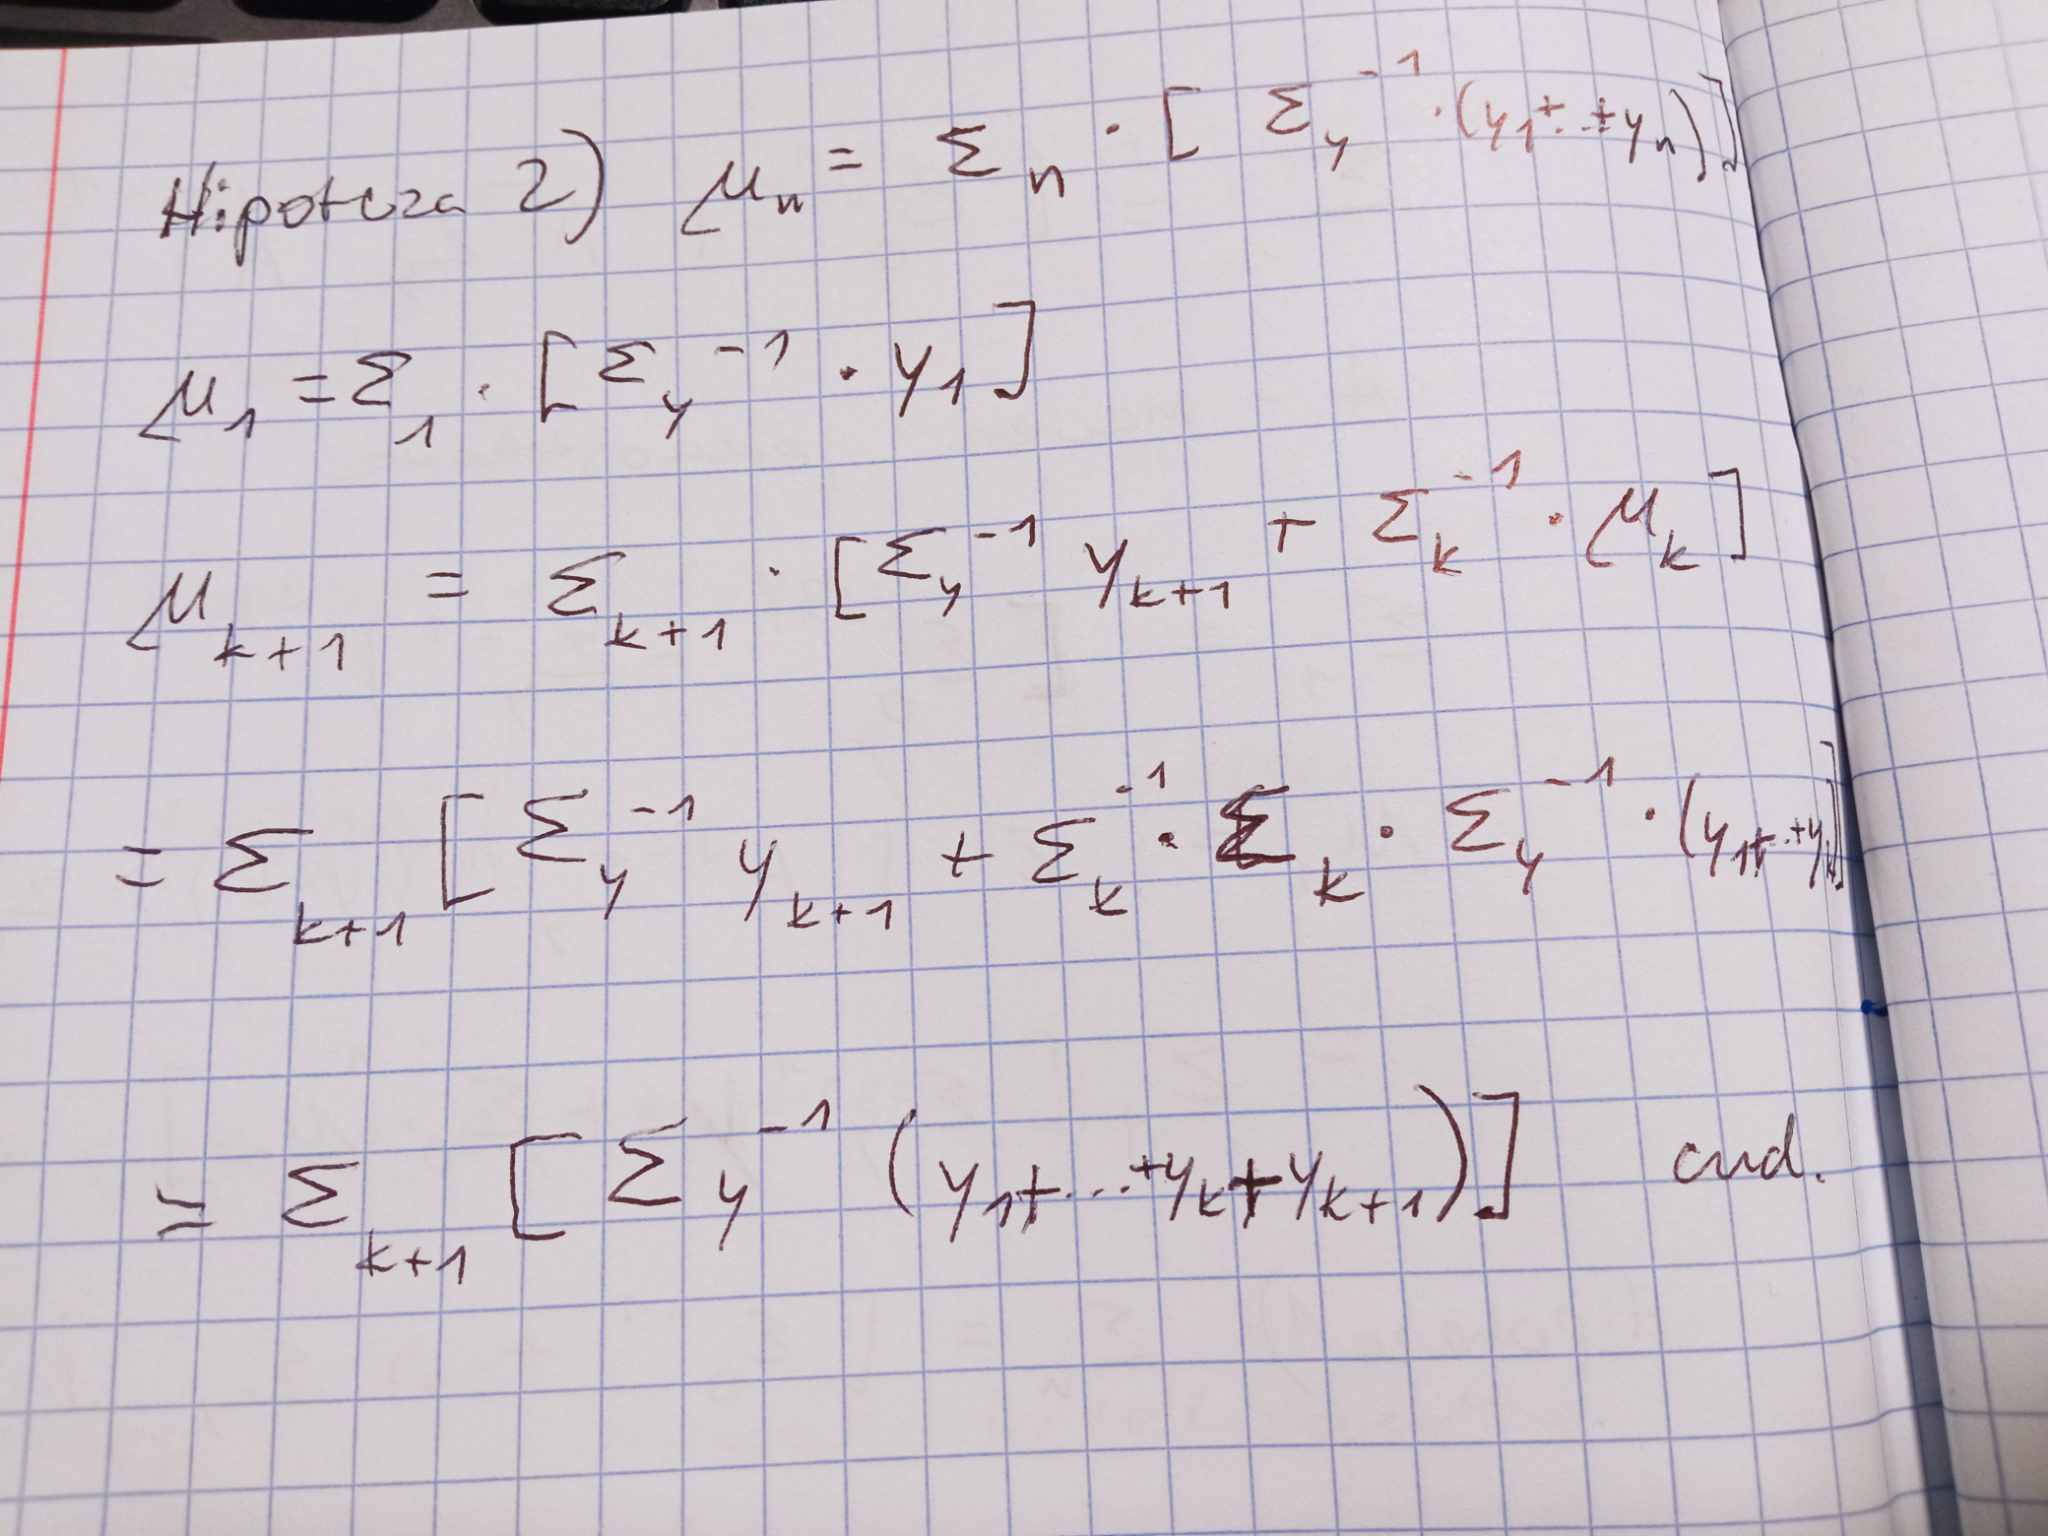 Hipoteza 2) μₙ = Σₙ · [ Σ_y⁻¹ · (y₁+..+yₙ)]
μ₁ = Σ₁ · [Σ_y⁻¹ · y₁]
μ_{k+1} = Σ_{k+1} · [Σ_y⁻¹ y_{k+1} + Σ_k⁻¹ · μ_k]
= Σ_{k+1} [Σ_y⁻¹ y_{k+1} + Σ_k⁻¹ · Σ_k · Σ_y⁻¹ · (y₁+..+y_k)]
= Σ_{k+1} [Σ_y⁻¹ (y₁+...+y_k+y_{k+1})] cnd.